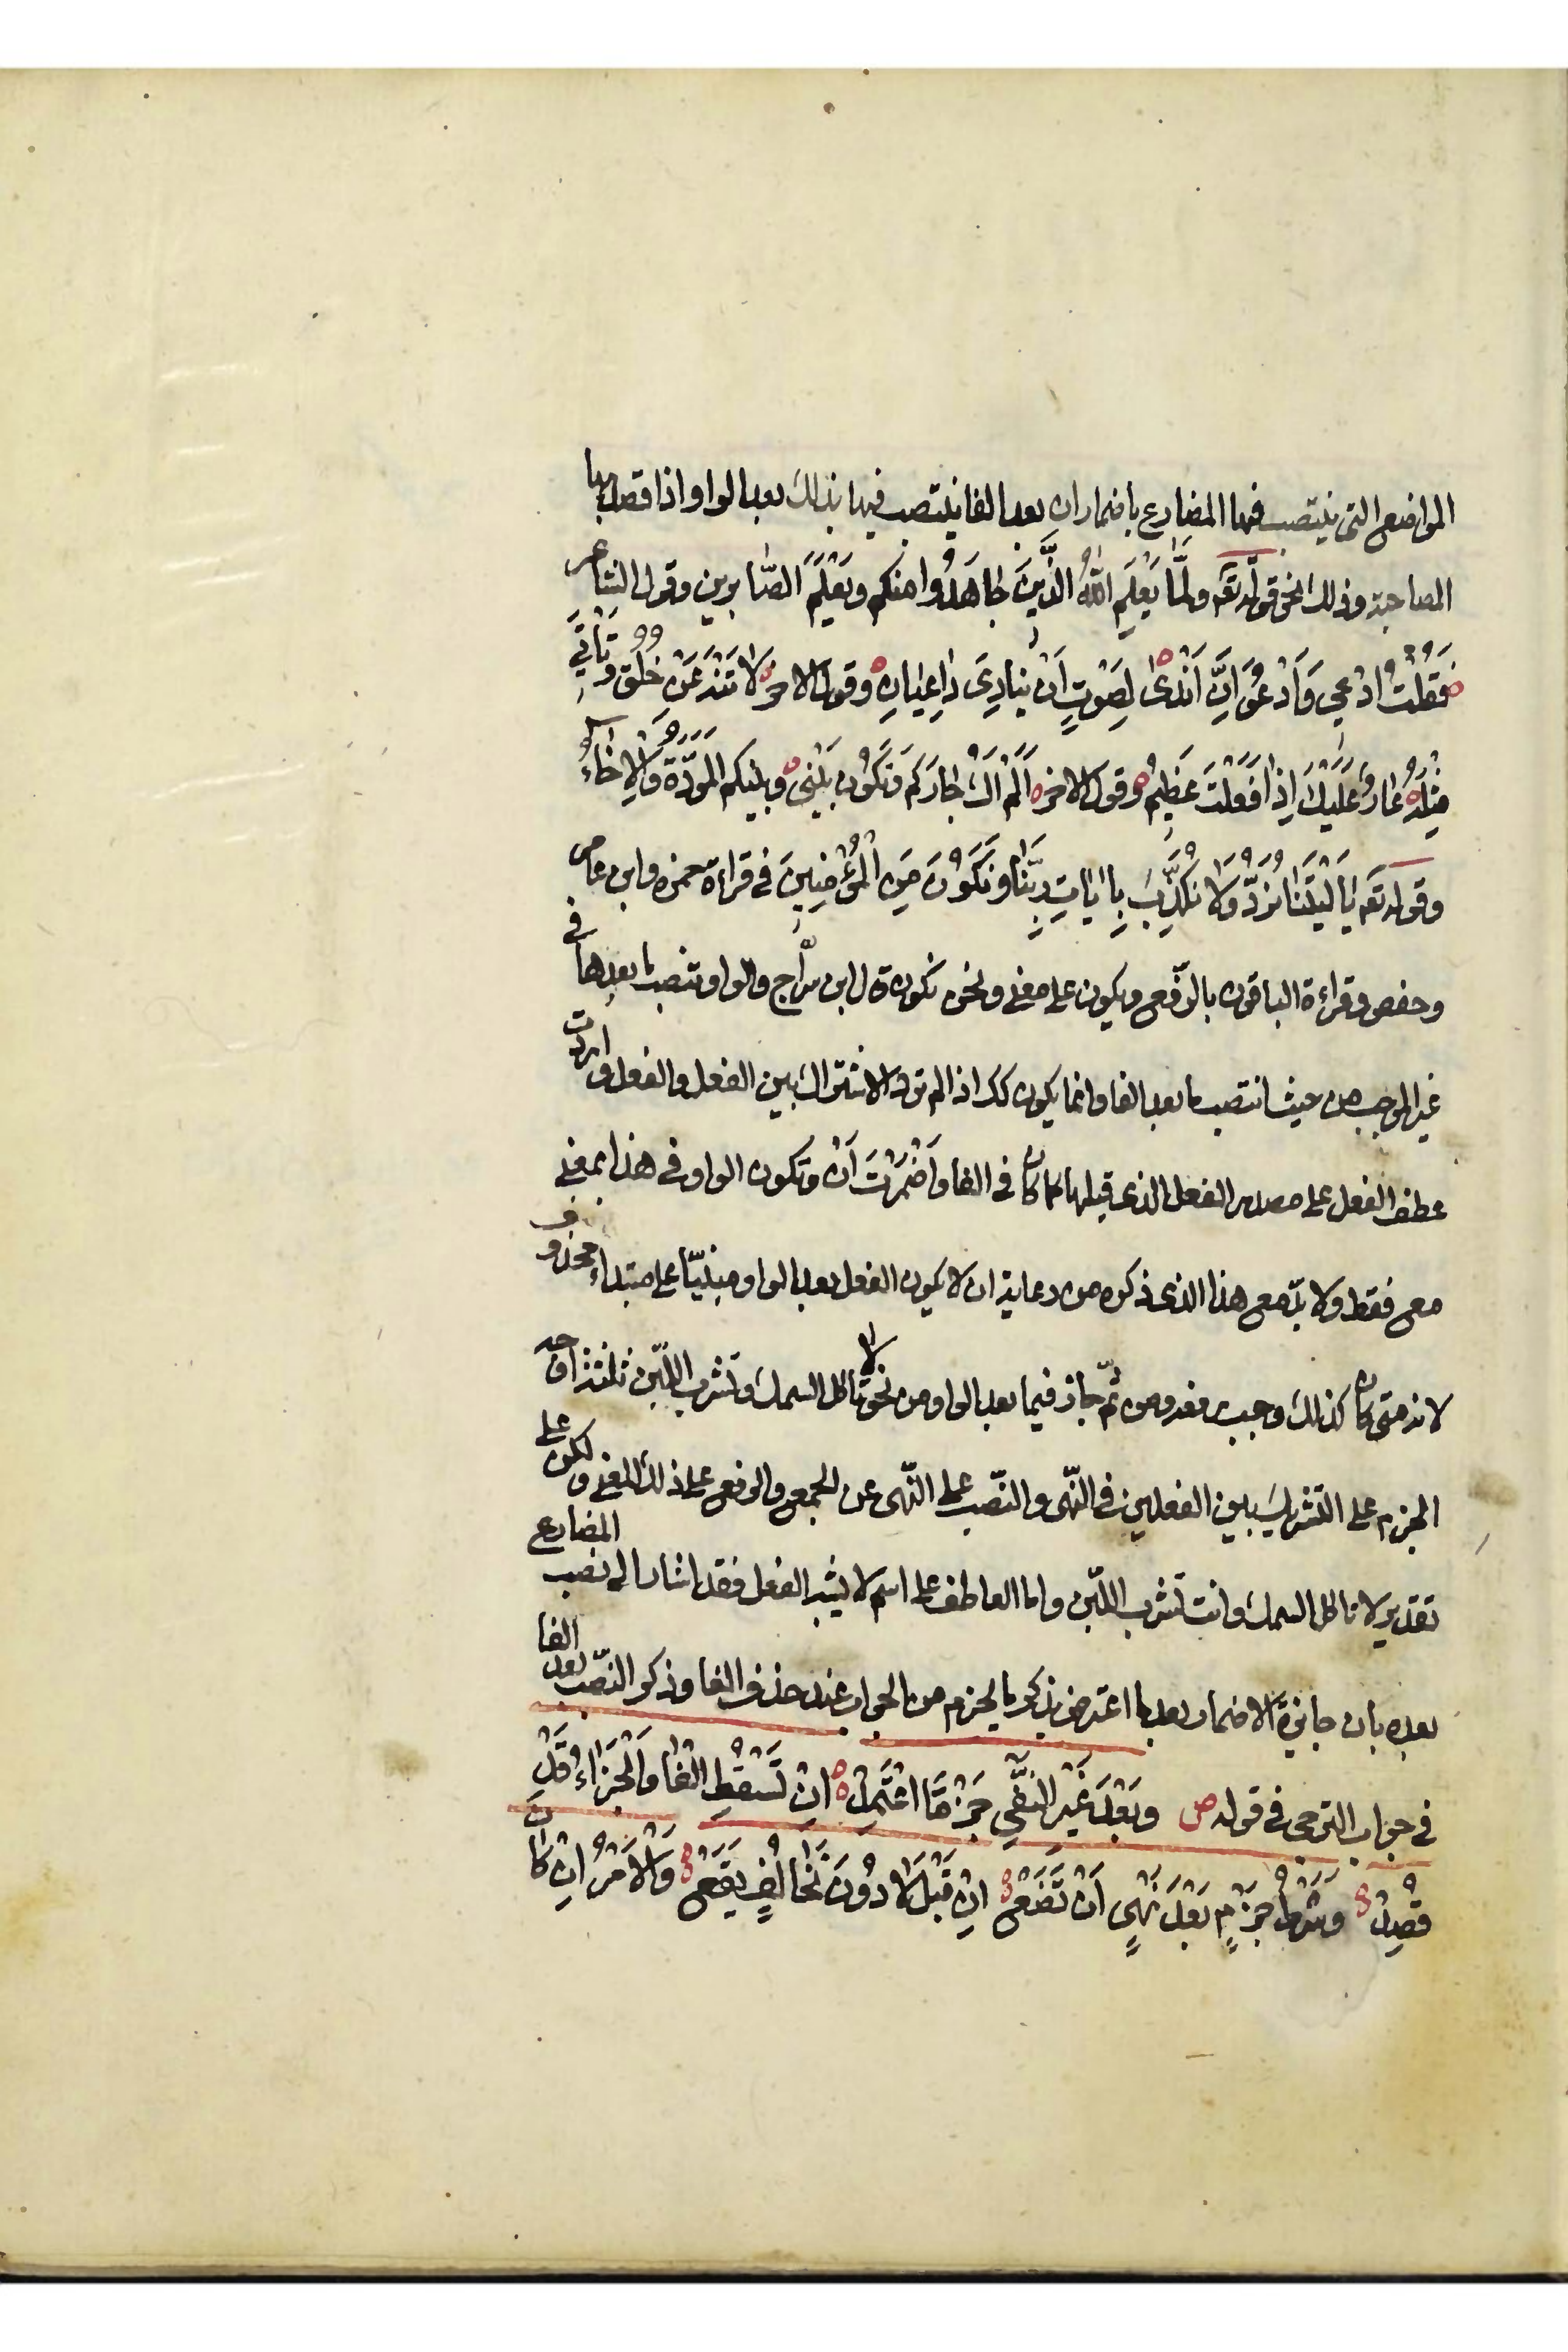 المواضع التى ينتصب فيها المضارع باضمار ان بعد الفا ينتصب فيها بذلك بعد الواو اذا قصد بها
المصاحبة وذلك نحو قوله تعه وَلَمَّا يَعْلَمِ اللّٰهُ الَّذِينَ جَاهَدُوا مِنكم ويَعْلَمَ الصّابرين وقول الشاعر
فَقُلْتُ ادْعِي وَاَدْعُوَ اِنَّ اَنْدٰى لِصَوْتٍ اَنْ يُنَادِىَ دَاعِيَانِ وقول الاخر لاَ تَنْهَ عَنْ خُلُقٍ وَتَأْتِيَ
مِثْلَهُ عَارٌ عَلَيْكَ اِذَا فَعَلْتَ عَظِيمُ وقول الاخر اَلَمْ اَكُ جَارَكم وَتَكُونَ بَيْنِى وبينكم المَوَدَّةُ وَالاِخَاءُ
وقوله تعه يَا لَيْتَنَا نُرَدُّ وَلَا نُكَذِّبَ بِاٰيَاتِ رَبِّنَا وَنَكُوْنَ مِنَ الْمُؤْمِنِينَ فى قراءة حمزه وابن عامر
وحفص وقراءة الباقون بالرّفع ويكون على معنى ونحن نكون قال ابن سرّاج والواو تنصب ما بعدها فى
غير الموجب من حيث انتصب ما بعد الفا وانما يكون كك اذا لم ترد الاشتراك بين الفعل والفعل واردت
عطف الفعل على مصدر الفعل الذى قبلها كما كان فى الفا وَاَضْمَرْتَ اَنْ وتكون الواو فى هذا بمعنى
مع فقط ولا بدّ مع هذا الذى ذكره من رعاية ان لا يكون الفعل بعد الواو مبنيّا على مبتداء محذوف
لانه متى كان كذلك وجب رفعه ومن ثمّ جاز فيما بعد الواو من نحو لا تاكل السمك وتشرب اللّبن ثلثة اوجه
الجزم على التشريك بين الفعلين فى النّهى والنّصب على النّهى عن الجمع والرفع على ذلك المعنى ولكن على
تقدير لا تاكل السمك وانت تشرب اللّبن واما العاطف على اسم لا يشبه الفعل فقد اشار الى نصب المضارع
بعده بان جايزة الاضمار بعد ما اعترض بذكر ما يجزم من الجواب عند حذف الفا وذكر النّصب بعد الفا
فى جواب الترجى فى قوله ص وَبَعْدَ غَيْرِ النَّفْىِ جَزْمًا اعْتَمِدْ اِنْ تَسْقُطِ الْفَا وَالْجَزَاءُ قَدْ
قُصِدْ وَشَرْطُ جَزْمٍ بَعْدَ نَهْىٍ اَنْ تَضَعْ اِنْ قَبْلَ لَا دُوْنَ تَخَالُفٍ يَقَعْ وَالْاَمْرُ اِنْ كَانَ